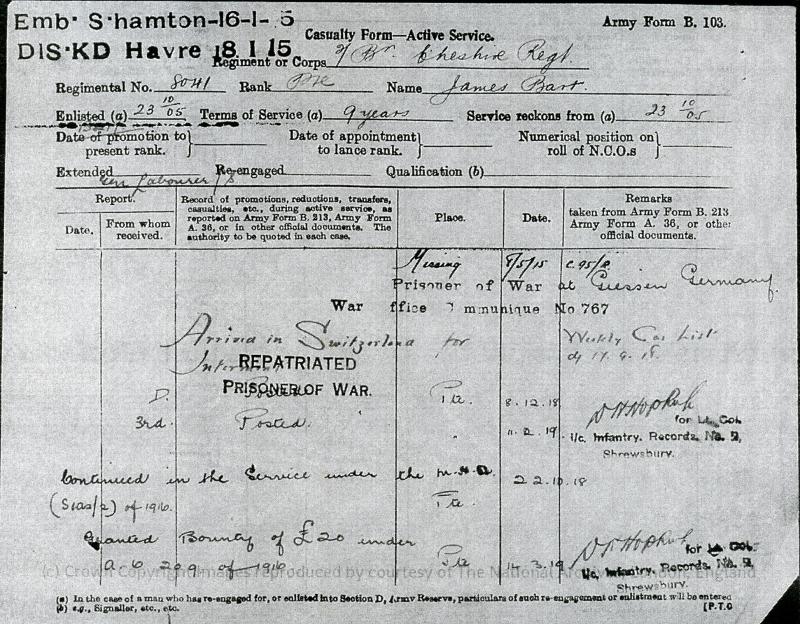 Emb. S'hamton-16-1- 5
Army Form B. 103.
Casualty Form—Active Service.
DIS.KD Havre 18. 1 15
Regiment or Corps 2/Bn Cheshire Regt.
Regimental No. 8041 Rank Pte Name James Bart.
Enlisted (a) 23 10/05 Terms of Service (a) 9 years Service reckons from (a) 23 10/05
Date of promotion to present rank. } Date of appointment to lance rank. } Numerical position on roll of N.C.Os }
Extended Re-engaged Qualification (b)
Gen Labourer
Report. Record of promotions, reductions, transfers, casualties, etc., during active service, as reported on Army Form B. 213, Army Form A. 36, or in other official documents. The authority to be quoted in each case. Place. Date. Remarks taken from Army Form B. 213, Army Form A. 36, or other official documents.
Date. From whom received.
Missing 8/5/15 C.95/
Prisoner of War at Giessen Germany.
War ffice mmunique No 767
Arrived in Switzerland for Weekly Cas List
Internment REPATRIATED of 17.9.18.
PRISONER OF WAR.
D. Posted Pte. 8.12.18
3rd. Posted. 11.2.19
D H Hopkih
for Lt. Col.
i/c. Infantry. Records. No. 2,
Shrewsbury.
Continued in the Service under the M.S.A. 22.10.18
(Sias/2) of 1916. Pte.
Granted Bounty of £20 under
A.O 209 of 1916 Pte 14.3.19
D H Hopkih for Lt. Col.
i/c. Infantry. Records. No. 2,
Shrewsbury.
(c) Crown Copyright Images reproduced by courtesy of The National Archives, London, England
(a) In the case of a man who has re-engaged for, or enlisted into Section D, Army Reserve, particulars of such re-engagement or enlistment will be entered
(b) e.g., Signaller, etc., etc. [P.T.O